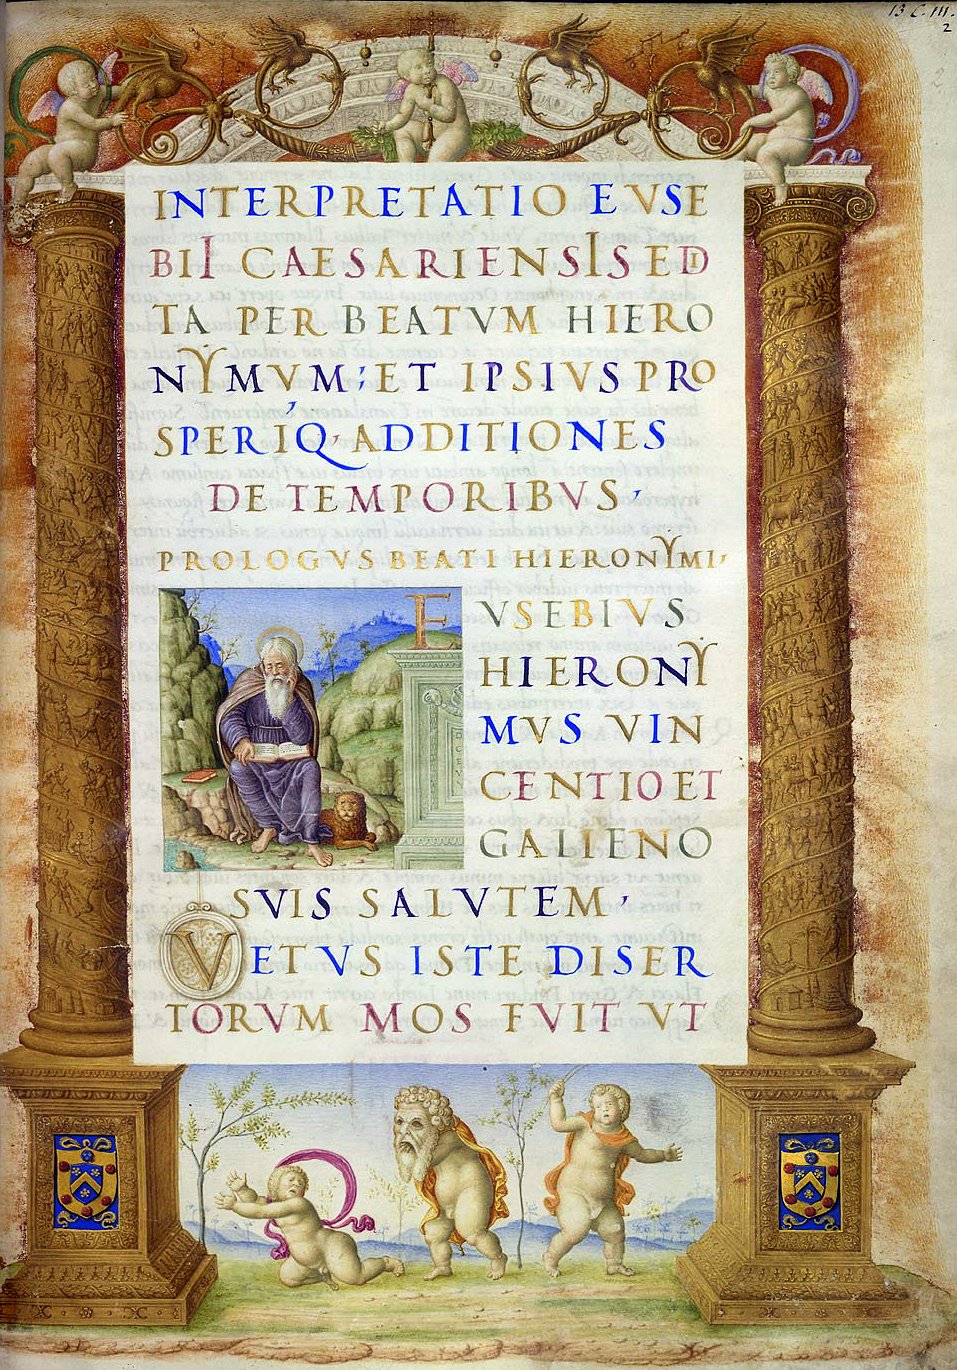 13 C. III.
2
2
INTERPRETATIO EVSE
BII CAESARIENSIS EDI
TA PER BEATVM HIERO
NYMVM: ET IPSIVS PRO
SPERIQ· ADDITIONES
DE TEMPORIBVS ,
PROLOGVS BEATI HIERONYMI ,
EVSEBIVS
HIERONY
MVS VIN
CENTIO ET
GALIENO
SVIS SALVTEM ,
VETVS ISTE DISER
TORVM MOS FVIT VT